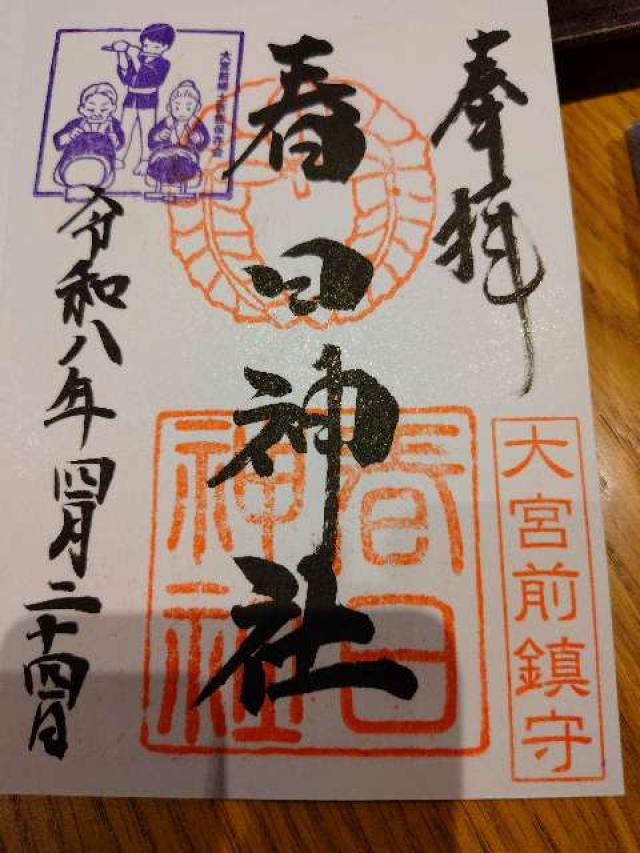 奉拝
大宮前鎮守
春日神社
春日神社
令和八年四月二十四日